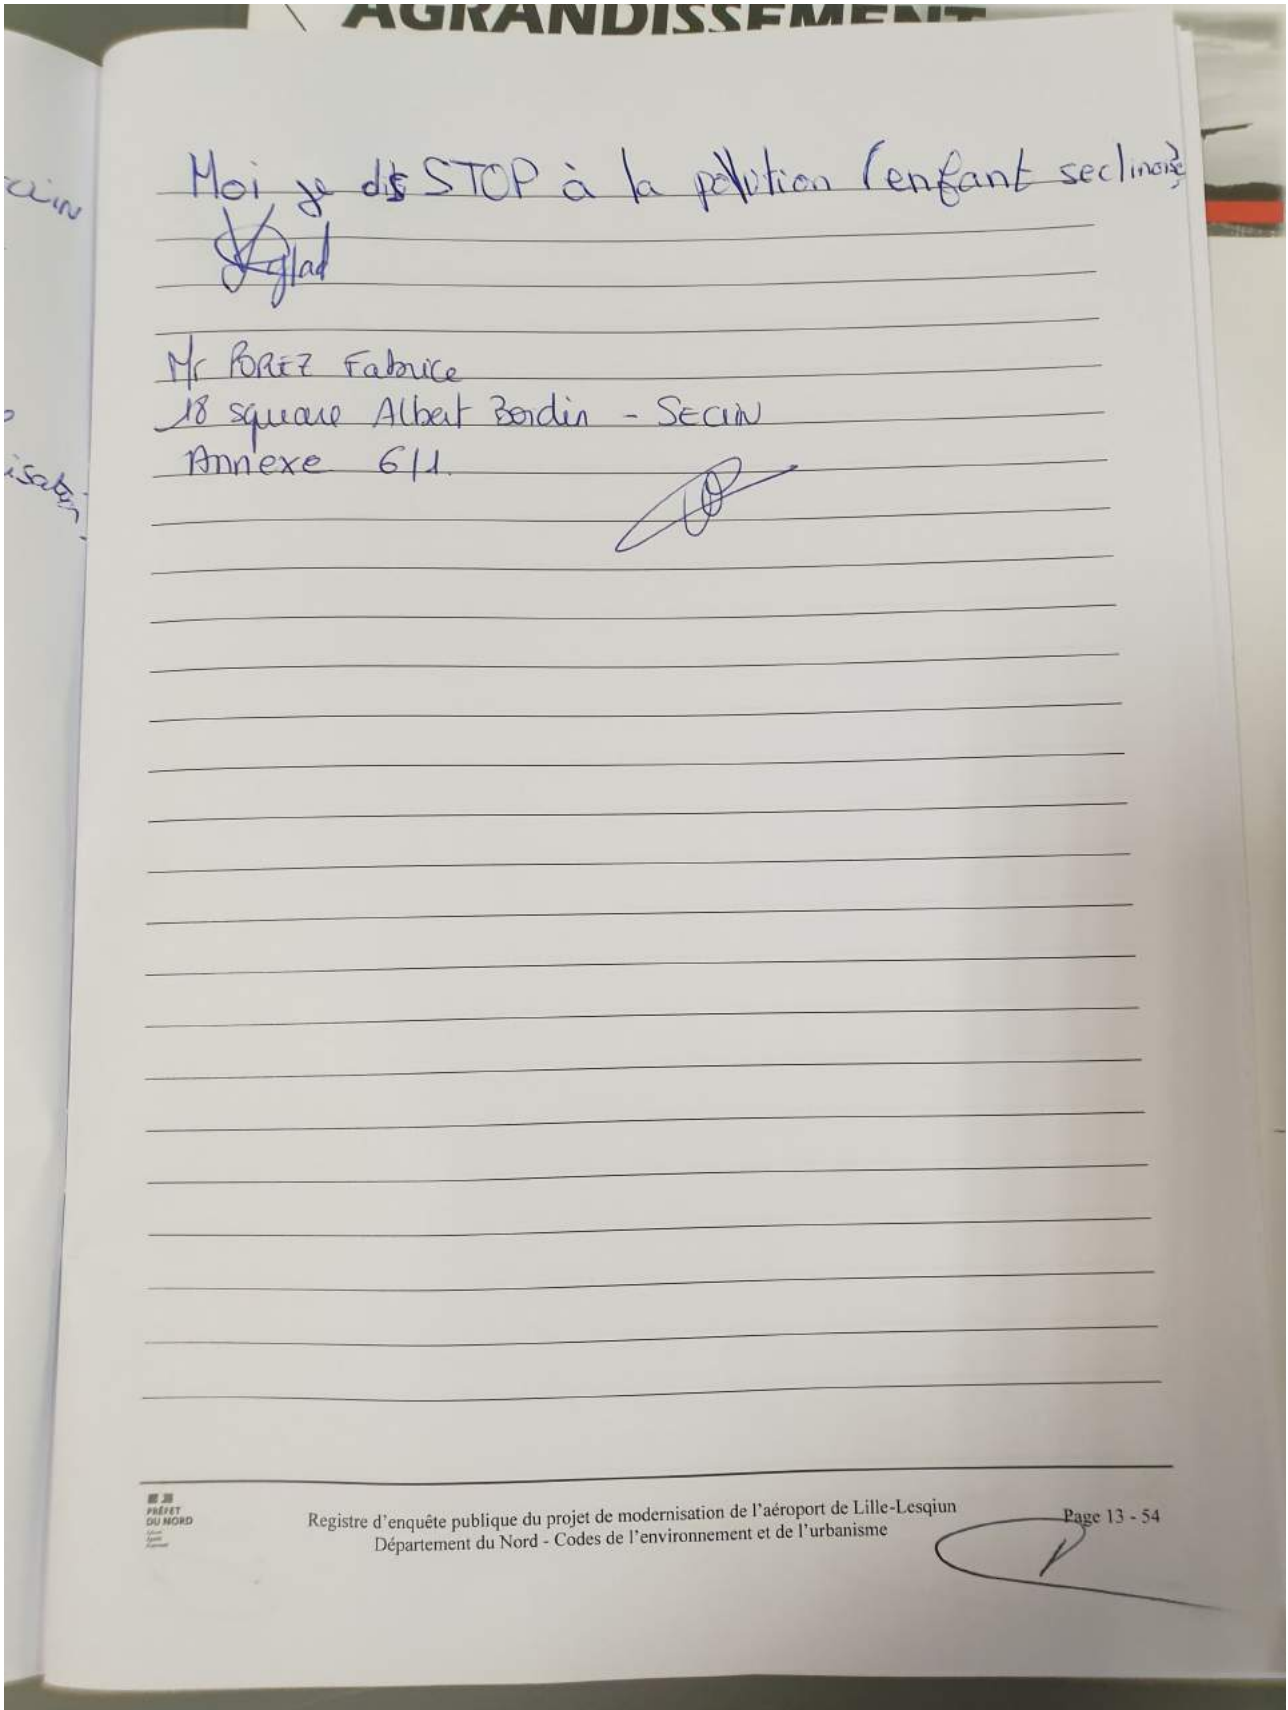 AGRANDISSEMENT
Moi, je dis STOP à la pollution (enfant seclinoise
Mr POREZ Fabrice
18 square Albert Bordin - SECLIN
Annexe 6/1.
PRÉFET
DU NORD
Registre d'enquête publique du projet de modernisation de l'aéroport de Lille-Lesqiun
Département du Nord - Codes de l'environnement et de l'urbanisme
Page 13 - 54